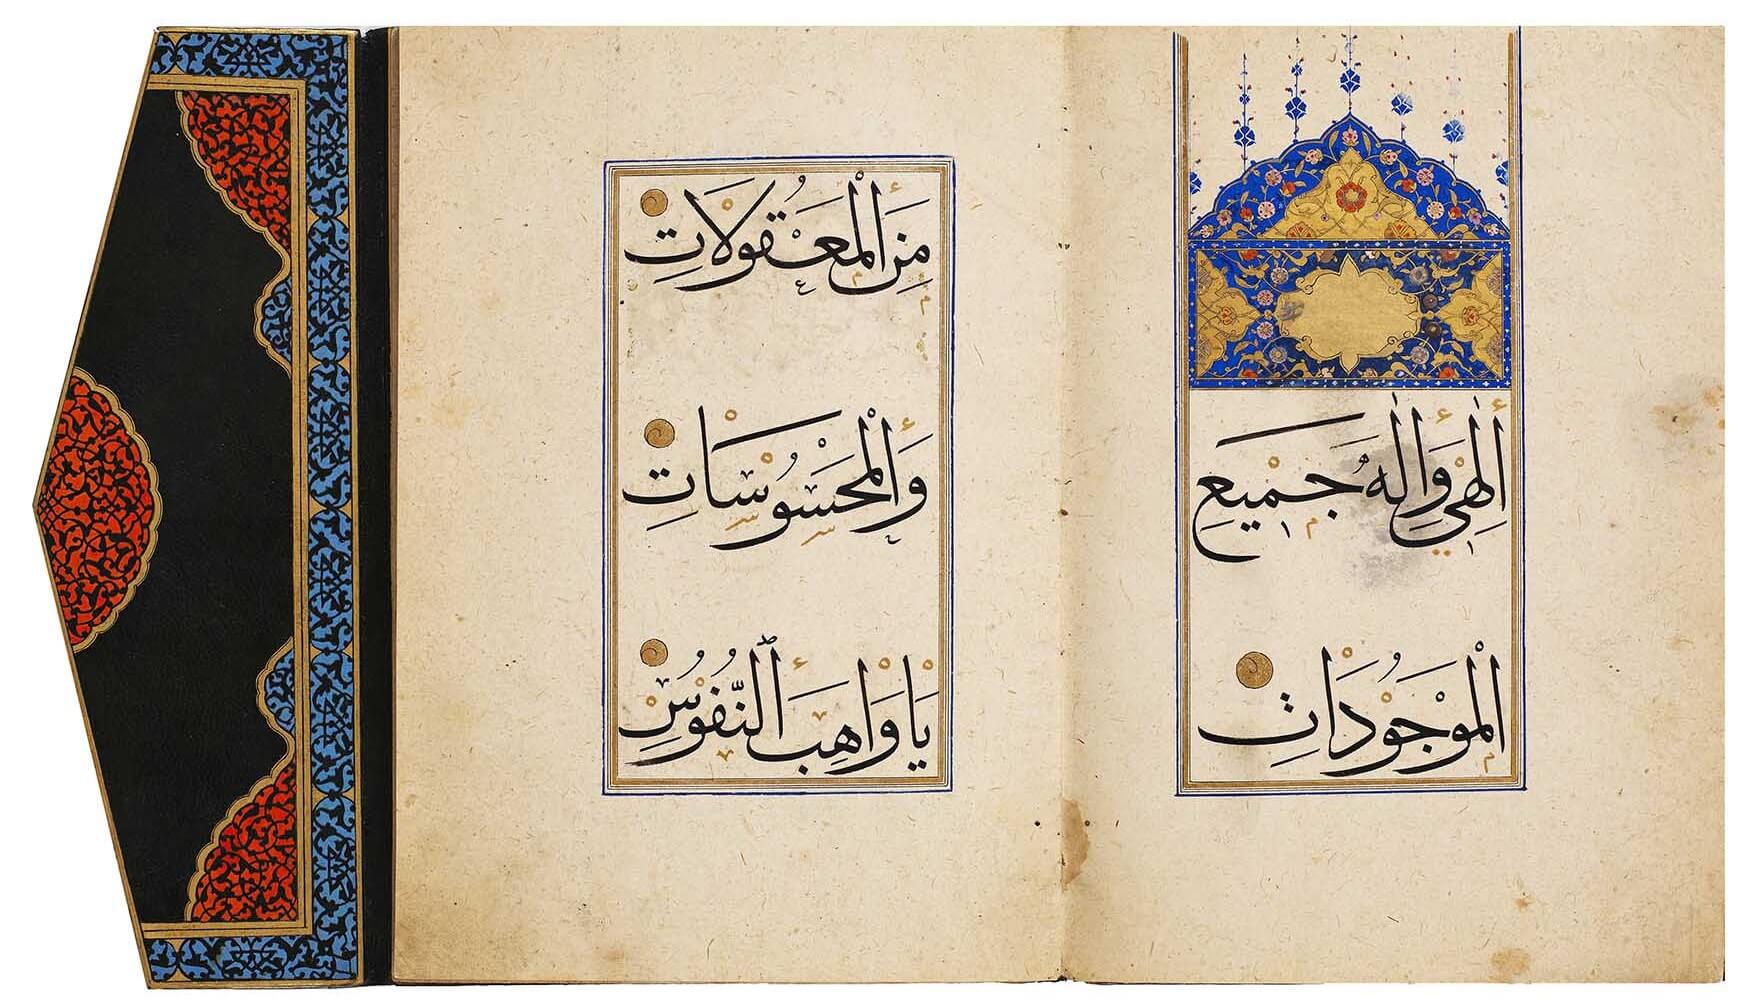 اِلٰهِي وَاِلٰهَ جَمِيعِ
الْمَوْجُودَاتِ
مِنَ الْمَعْقُولَاتِ
وَالْمَحْسُوسَاتِ
يَا وَاهِبَ النُّفُوسِ